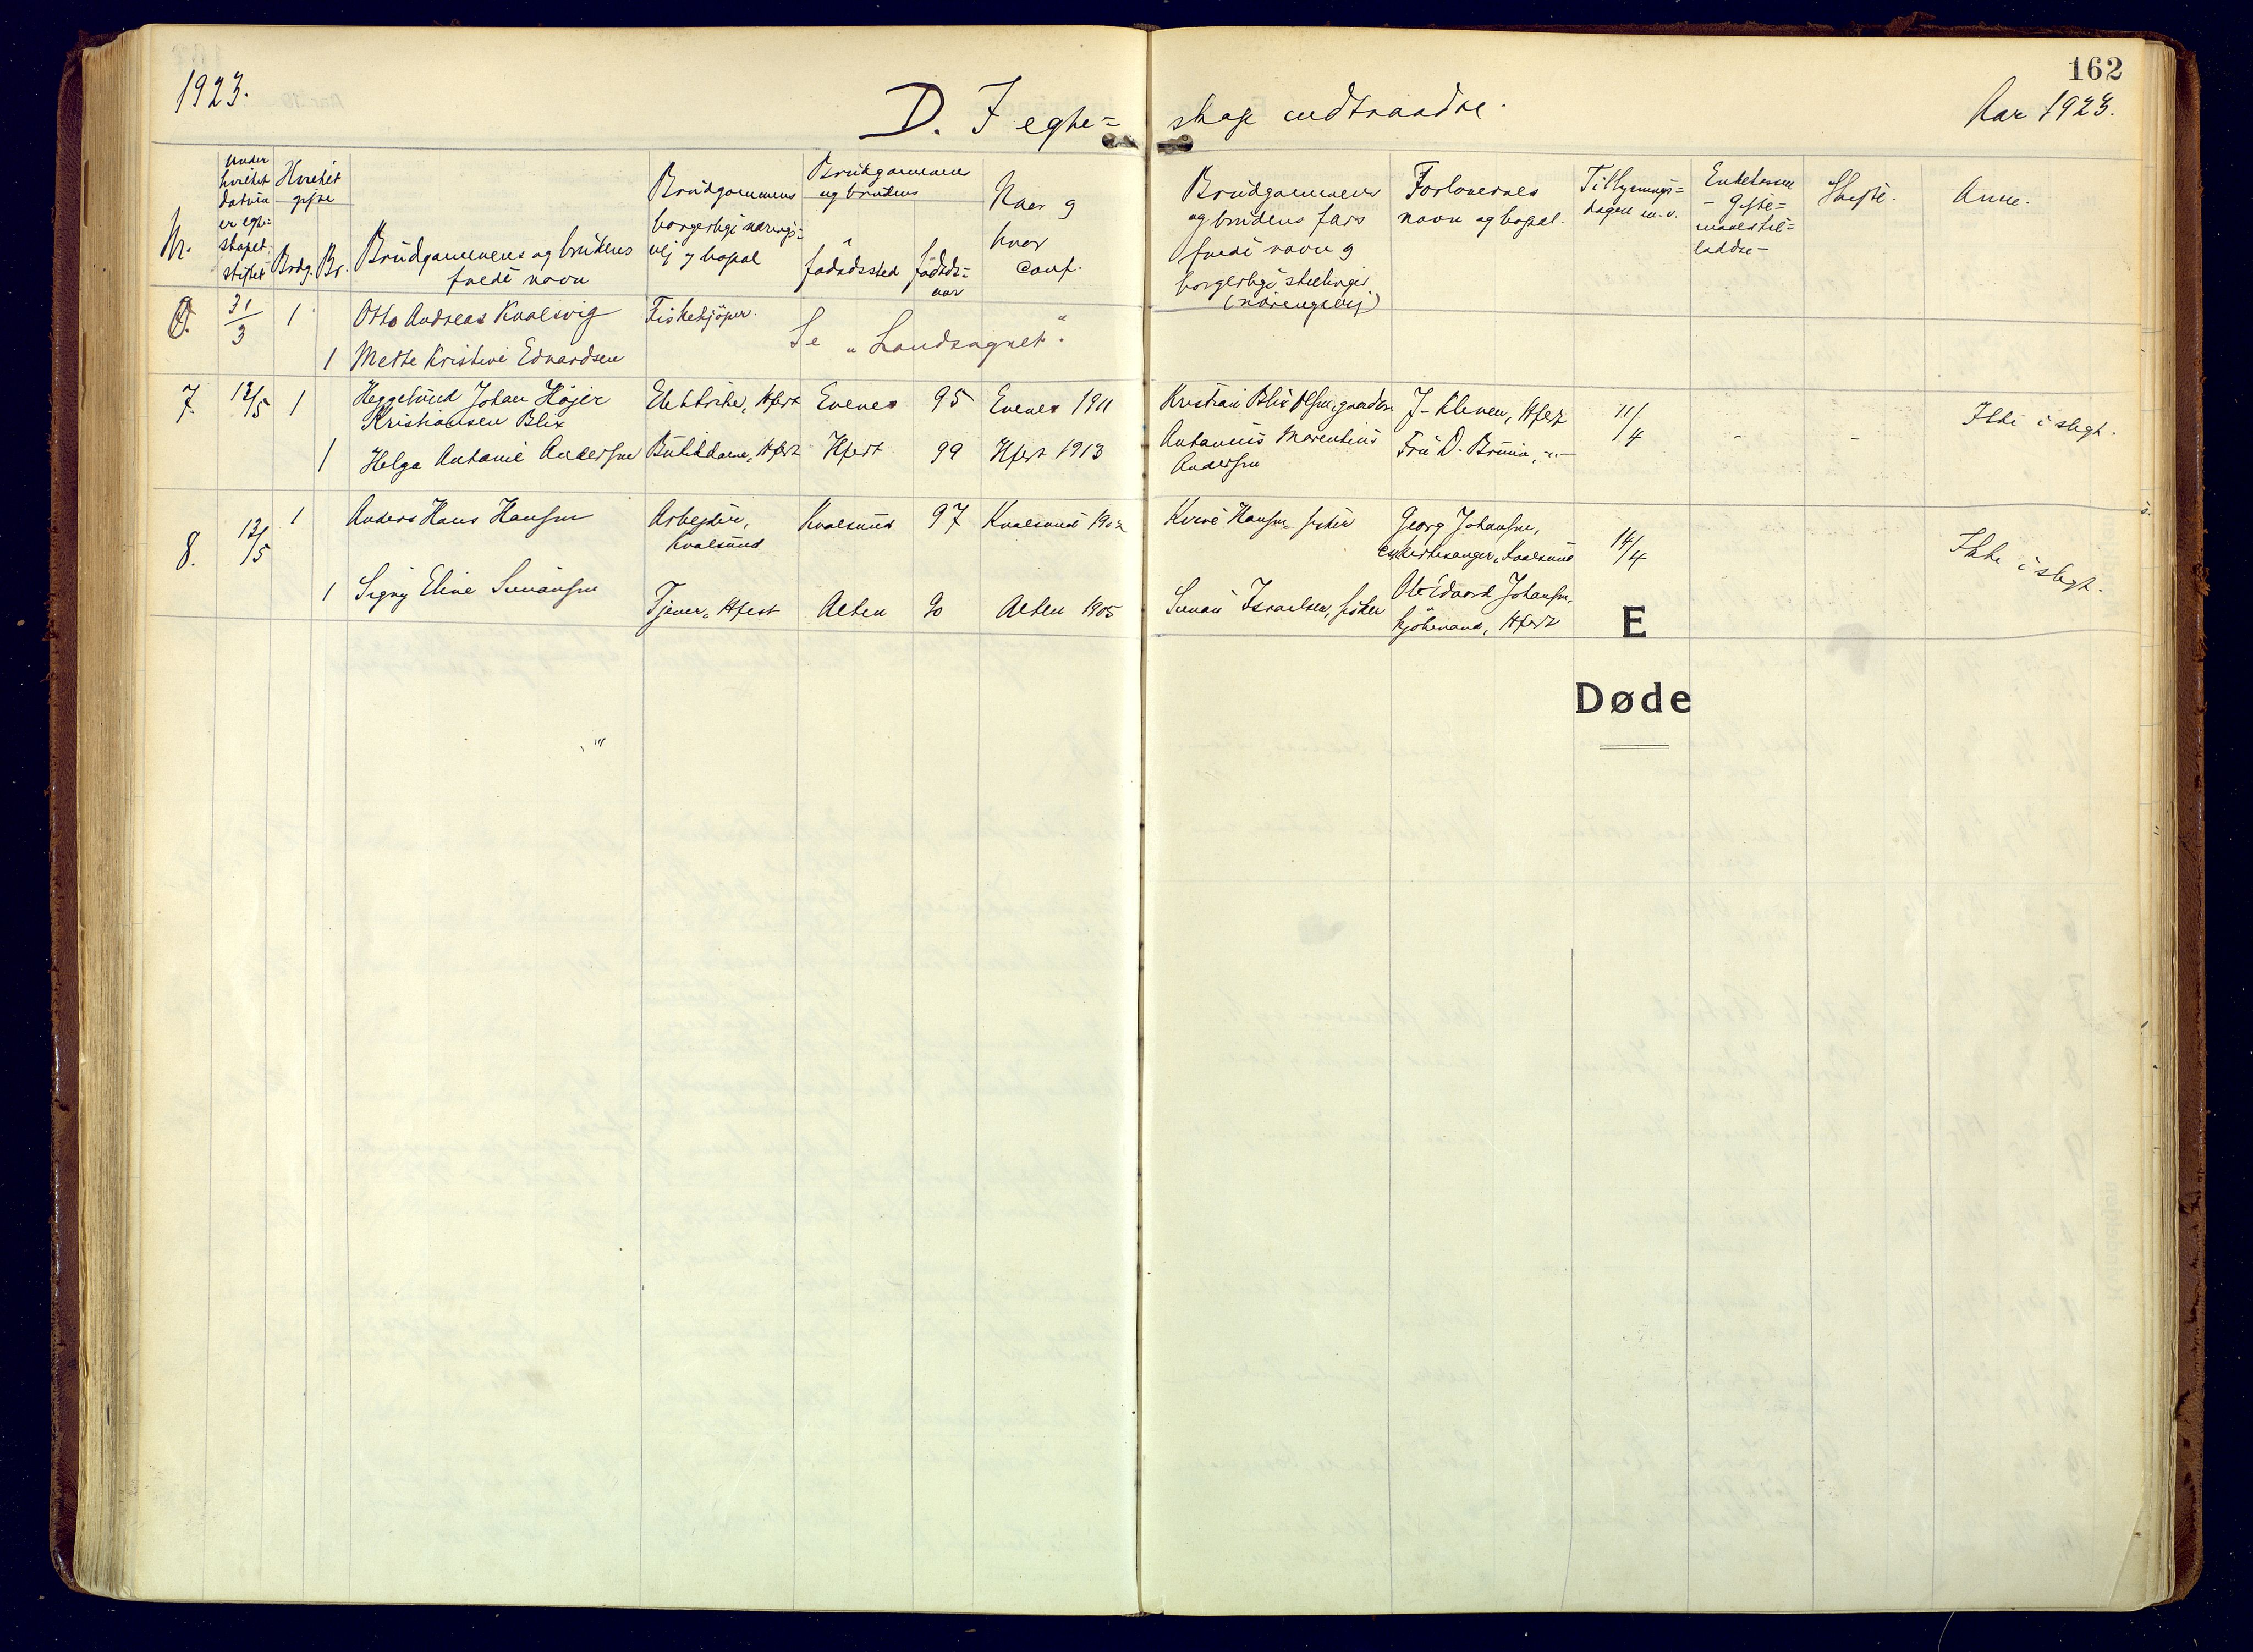 1923.
D. I egte=
skap indtraadte.
162
Aar 1923.
Nr.
Under
hvilket
datum
er egte=
skapet
stiftet
Hvilket
gifte
Brdg. Br.
Brudgommens og brudens
fulde navn
Brudgommens
borgerlige nærings=
vej og bopæl
Brudgommens
og brudens
fødested
fødsels=
aar
Naar og
hvor
conf.
Brudgommens
og brudens fars
fulde navn og
borgerlige stilling
(næringsvej)
Forlovernes
navn og bopæl.
Tillysnings=
dagen m.v.
Enkelovene
- Gifte=
maalstil=
ladelse -
Skifte.
Anm.
31/3 1 Otto Andreas Kvalsvig Fiskekjøper.
Se "Landsognet".
1 Mette Kristine Edvardsen
7. 12/5 1 Heggelund Johan Højer
Kristiansen Blix
Elektriker, Hfest Evenes 95 Evenes 1911
Kristian Blix Olsen, gaardbr. J. Kleven, Hfest 11/4 - - Ikke i slegt.
1 Helga Antonie Andersen Butikdame, Hfest Hfest 99 Hfest 1913
Antonius Marentius
Andersen
Fru D. Bruun, -"-
8. 12/5 1 Anders Hans Hansen Arbejder,
Kvalsund
Kvalsund 97 Kvalsund
Hansen, fisker Georg Johansen,
kirkesanger, Kvalsund
14/4
Ikke i slegt.
1 Signy Eline Simonsen Tjener, Hfest Alten 90 Alten 1905
Simon Israelsen, fisker Ole Edvard Johansen,
Hfest
E
Døde